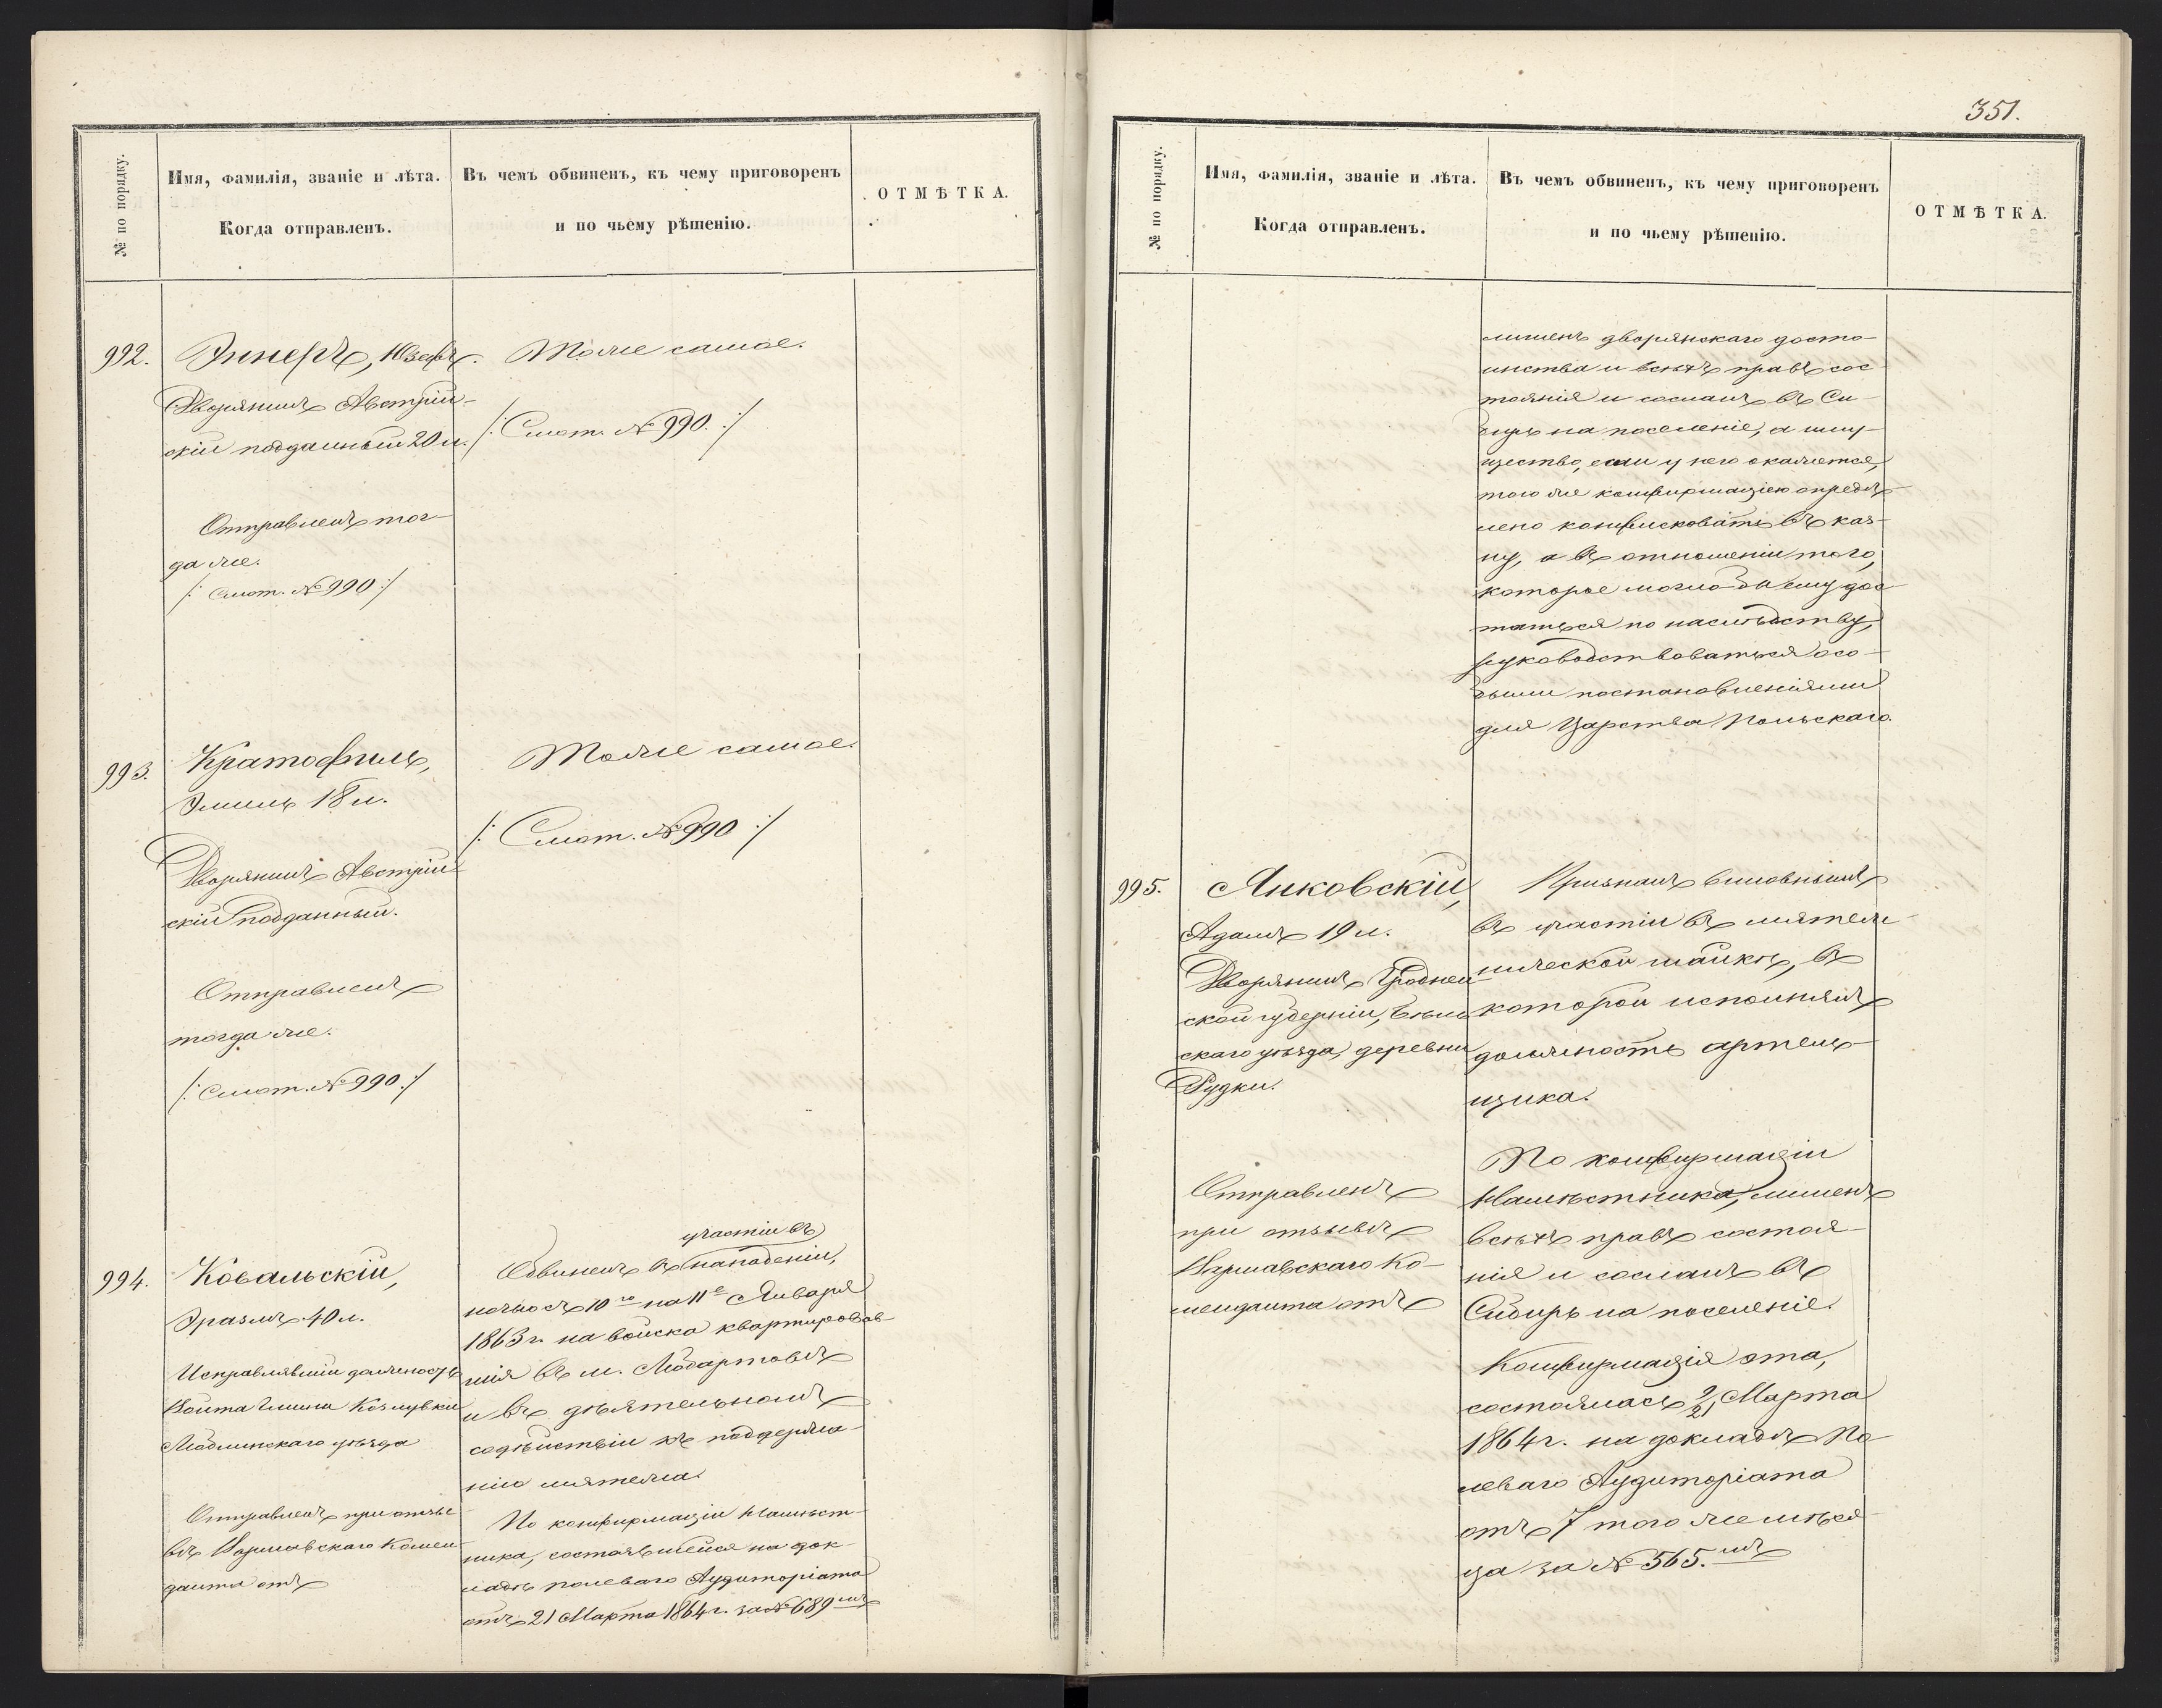 № по порядку.
Имя, фамилія, званіе и лѣта.
Когда отправленъ.
Въ чемъ обвиненъ, къ чему приговоренъ
и по чьему рѣшенію.
ОТМѢТКА.
992.
Эннеръ, Юзефъ.
Дворянинъ Австрій-
скій подданный 20 л.
Отправленъ тог-
да же.
/: Смот. № 990 :/
Тоже самое.
/: Смот. № 990. :/
993.
Кратофиль,
Эмиль 18 л.
Дворянинъ Австрій-
скій подданный.
Отправленъ
тогда же.
/: Смот. № 990. :/
Тоже самое.
/: Смот. № 990 :/
994.
Ковальскій,
Эразмъ 40 л.
Исправлявшій должность
Войта Гмины Козлувки
уѣзда
Отправленъ при отзы-
вѣ Варшавскаго Комен-
данта отъ
участіи въ
Обвиненъ въ нападеніи,
ночью съ 10го на 11е Января
1863 г. на войска квартировав-
шія въ м.
и въ дѣятельномъ
содѣйствіи къ поддержа-
нію мятежа.
По конфирмаціи Намѣст-
ника, состоявшейся на док-
ладѣ полеваго Аудиторіата
отъ 21 Марта 1864 г. за № 689мъ
351.
№ по порядку.
Имя, фамилія, званіе и лѣта.
Когда отправленъ.
Въ чемъ обвиненъ, къ чему приговоренъ
и по чьему рѣшенію.
ОТМѢТКА.
лишенъ дворянскаго досто-
инства и всѣхъ правъ сос-
тоянія и сосланъ въ Си-
бирь на поселеніе, а иму-
щество, если у него окажется,
того же конфирмаціею опредѣ-
лено конфисковать въ каз-
ну, а въ отношеніи того,
которое могло бы ему дос-
таться по наслѣдству,
руководствоваться осо-
быми постановленіями
для Царства Польскаго.
995.
Янковскій,
Адамъ 19 л.
Дворянинъ Гроднен-
ской губерніи, Бѣль-
скаго уѣзда, деревни
Рудки.
Отправленъ
при отзывѣ
Варшавскаго Ко-
менданта отъ
Признанъ виновнымъ
въ участіи въ мятеж-
нической шайкѣ, въ
которой исполнялъ
должность артель-
щика.
По конфирмаціи
Намѣстника, лишенъ
всѣхъ правъ состоя-
нія и сосланъ въ
Сибирь на поселеніе.
Конфирмація эта,
состоялась 9/21 Марта
1864 г. на докладѣ По-
леваго Аудиторіата
отъ 7 того же мѣся-
ца за № 565.мъ